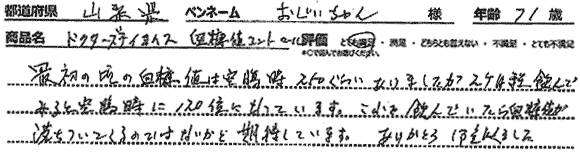 都道府県 山形県 ペンネーム おじいちゃん 様 年齢 71 歳
商品名 ドクターズチョイス 血糖値コントロール 評価 とても満足・満足・どちらとも言えない・不満足・とても不満足
※○で囲んでお選びください。
最初の頃の血糖値は空腹時 240ぐらいありましたが 2ケ月程飲んで
みると空腹時に120位になっています。このまま飲んでいたら血糖値が
落ちついてくるのではないかと期待しています。ありがとうございました